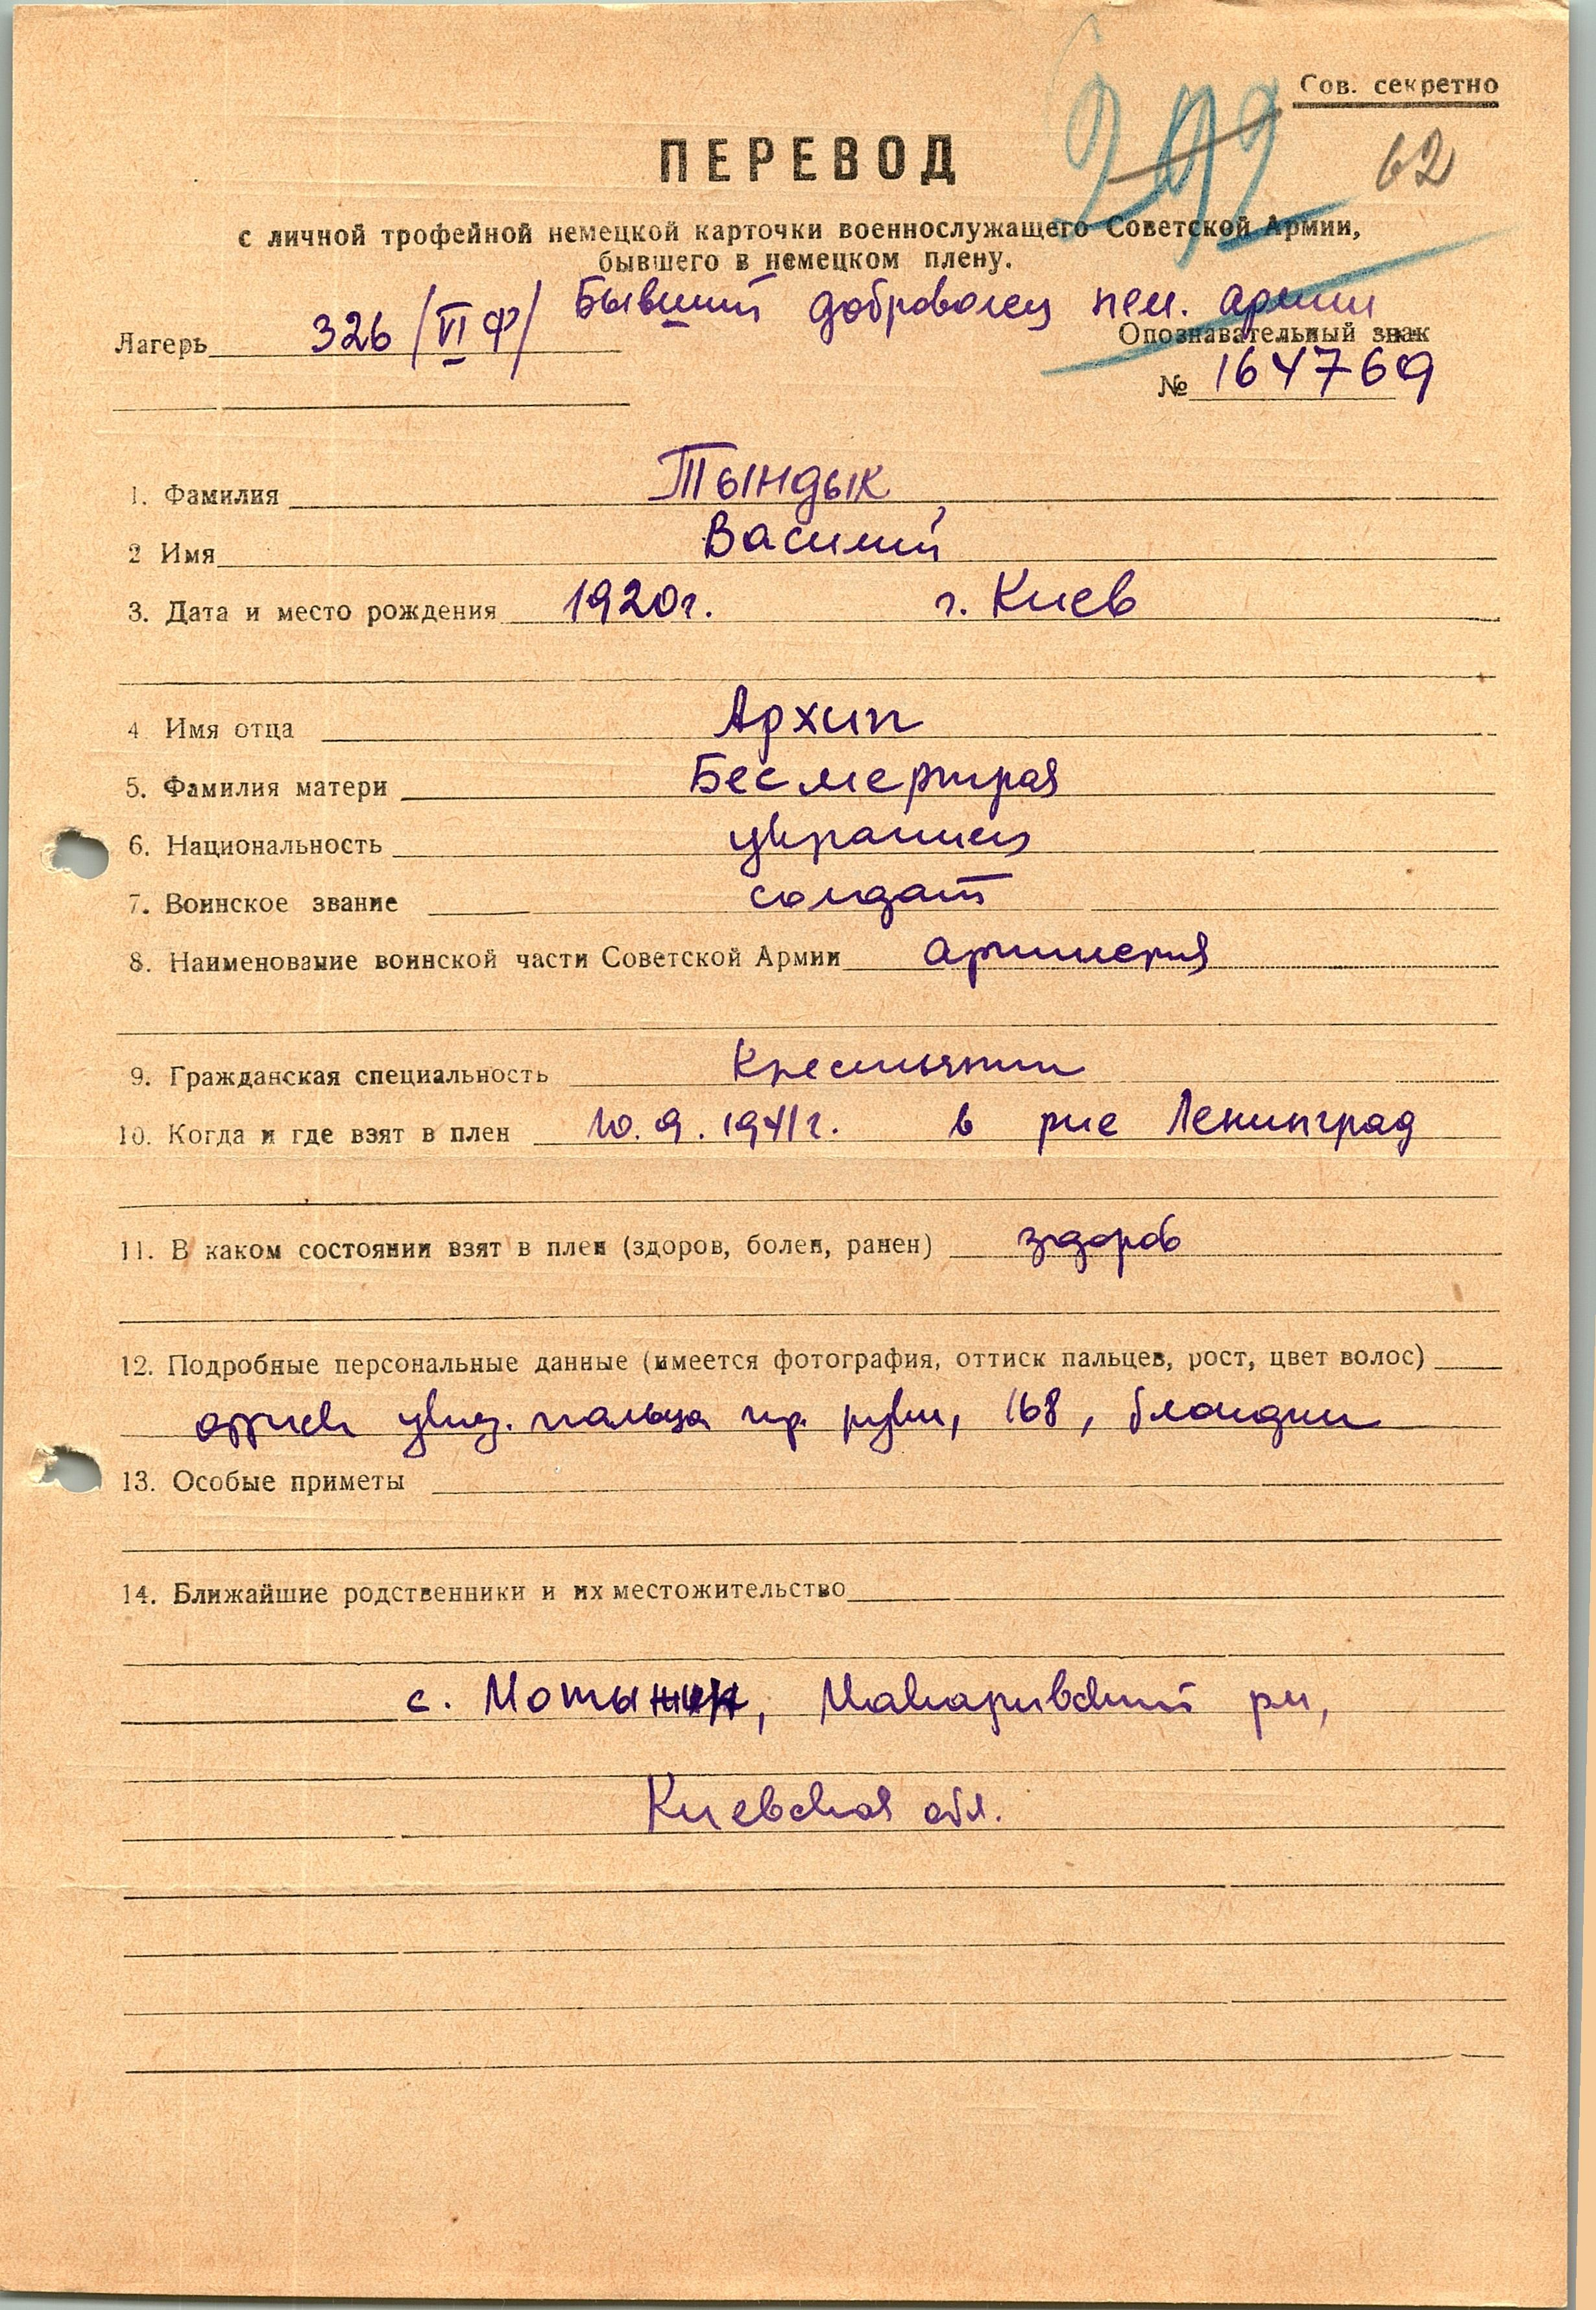 Сов. секретно
292 62
ПЕРЕВОД
с личной трофейной немецкой карточки военнослужащего Советской Армии,
бывшего в немецком плену.
Бывший доброволец нем. армии
Лагерь 326 /VI Ф/ Опознавательный знак
№ 164769
1. Фамилия Тындык
2 Имя Василий
3. Дата и место рождения 1920г. г. Киев
4 Имя отца Архип
5. Фамилия матери Бесмертная
6. Национальность украинец
7. Воинское звание солдат
8. Наименование воинской части Советской Армии артиллерия
9. Гражданская специальность крестьянин
10. Когда и где взят в плен 10.9.1941г. в рне Ленинград
11. В каком состоянии взят в плен (здоров, болен, ранен) здоров
12. Подробные персональные данные (имеется фотография, оттиск пальцев, рост, цвет волос)
оттиск указ. пальца пр. руки, 168, блондин
13. Особые приметы
14. Ближайшие родственники и их местожительство
с. Мотыжин, Макаривский рн,
Киевская обл.